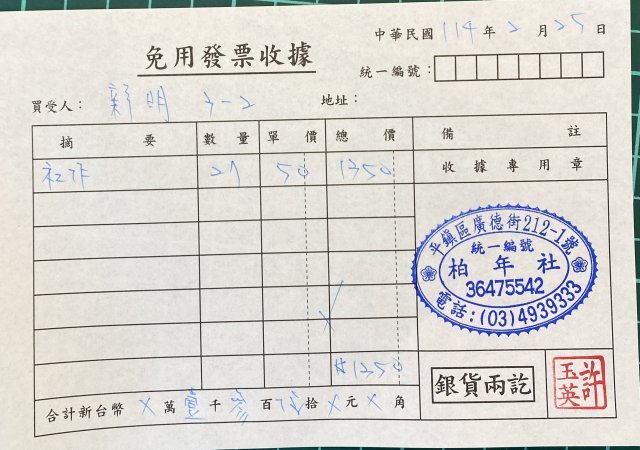 免用發票收據
中華民國 114 年 2 月 25 日
統一編號：
買受人： 新明 3-2 地址：
摘要 數量 單價 總價 備註
27 50 1350 收據專用章
平鎮區廣德街212-1號
統一編號
柏年社
36475542
電話：(03)4939333
$1350
銀貨兩訖
許玉英
合計新台幣 X 萬 壹 千 參 百 伍 拾 X 元 X 角